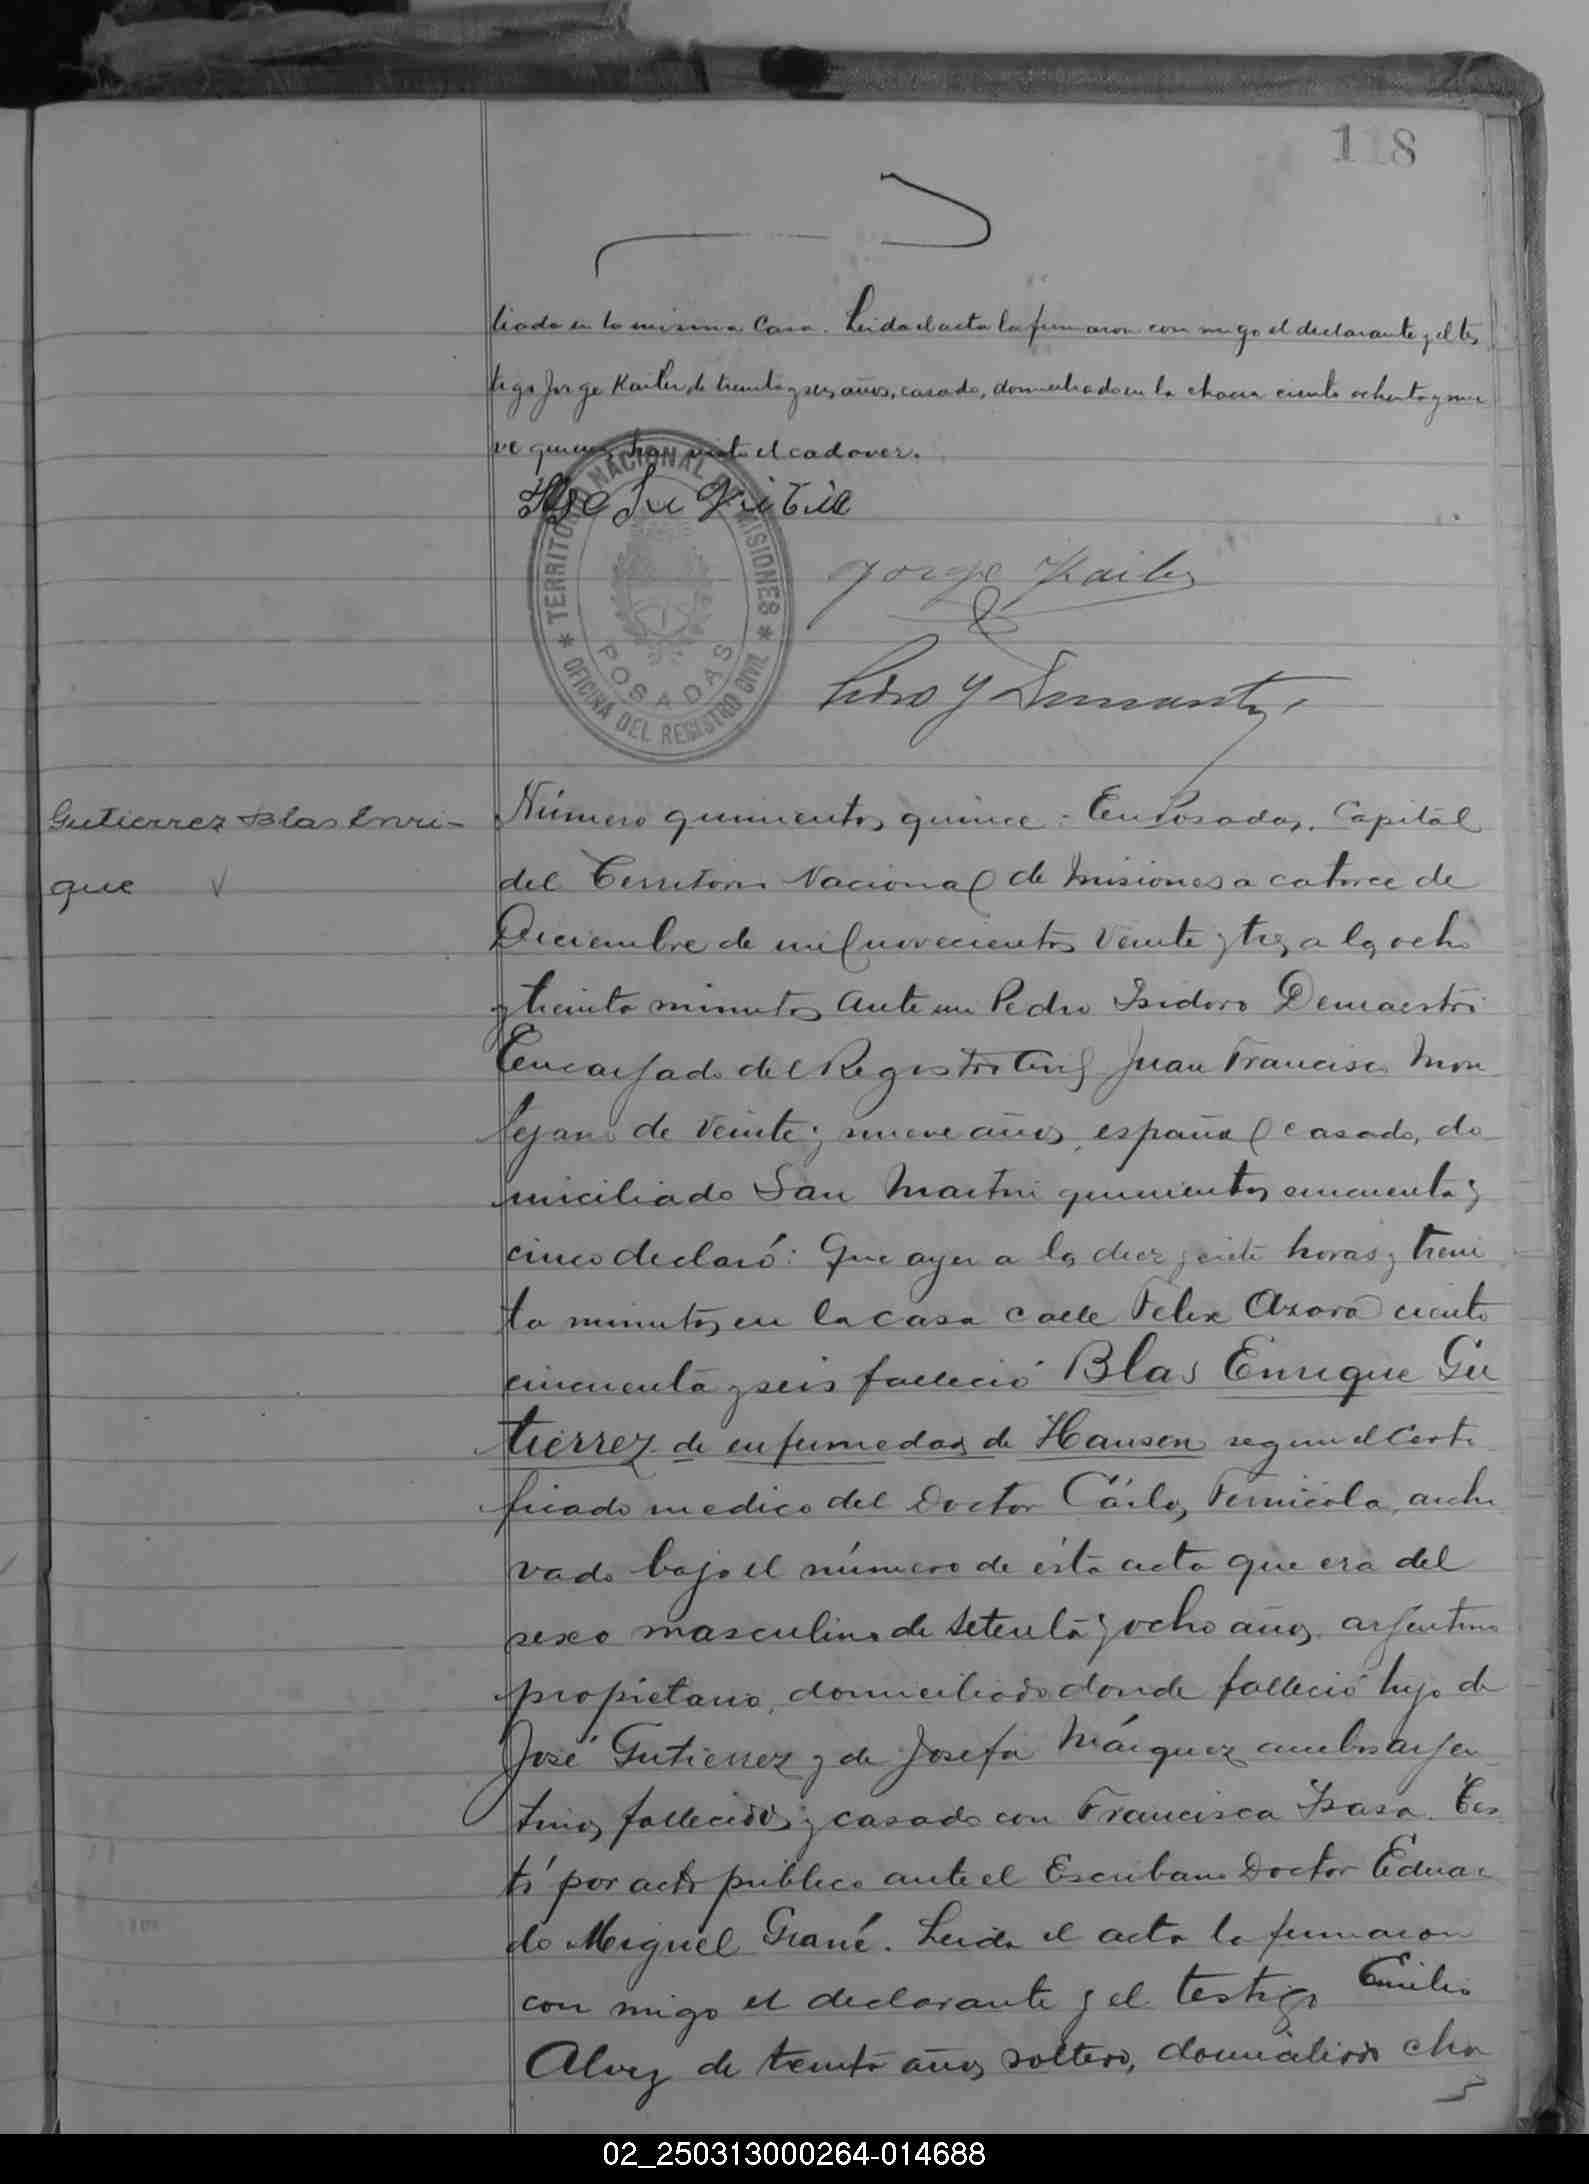 118
liado en la misma casa. Leida el acta la firmaron con migo el declarante y el tes
tigo Jorge Kailer, de treinta y seis años, casado, domiciliado en la chacra ciento ochenta y nue
ve quienes han visto el cadaver.
TERRITORIO NACIONAL DE MISIONES
OFICINA DEL REGISTRO CIVIL
POSADAS
Jorge
Pedro Y Demaestri
Gutierrez Blas Enri-
que
Número quinientos quince: En Posadas, Capital
del Territorio Nacional de Misiones a catorce de
Diciembre de mil novecientos veinte y tres a las ocho
y treinta minutos ante mi Pedro Isidoro Demaestri
Encargado del Registro Civil Juan Francisco Mon
tejano de veinte y nueve años, español casado, do
miciliado San Martin quinientos cincuenta y
cinco declaró: Que ayer a las diez y siete horas y trein
ta minutos en la casa calle Felix Azara ciento
cincuenta y seis falleció Blas Enrique Gu
tierrez de enfermedad de Hansen segun el certi
ficado medico del Doctor Cárlos Fernicola, archi
vado bajo el número de ésta acta que era del
sexo masculino de setenta y ocho años, argentino
propietario, domiciliado donde falleció hijo de
José Gutierrez y de Josefa Márquez ambos argen
tinos fallecidos y casado con Francisca Isasa. Tes
tó por acto público ante el Escribano Doctor Eduar
do Miguel Grané. Leida el acta la firmaron
con migo el declarante y el testigo Emilio
Alvez de treinta años, soltero, domiciliado cha
02_250313000264-014688